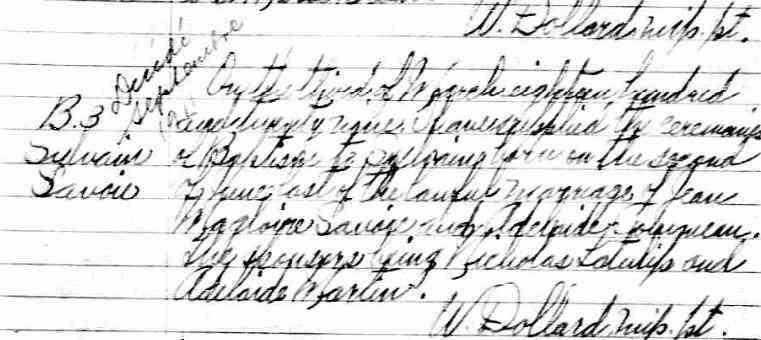 W. Dollard, mip. pt.
Décédé
Septembre
On the third of March eighteen hundred
B. 3 and twenty nine, I have supplied the ceremonies
Sylvain of Baptism to Sylvain born on the second
Savoie of June last of the lawful marriage of Jean
Magloire Savoie and Adelaide
The sponsors being Nicholas and
Adelaide Martin.
W. Dollard, mip. pt.